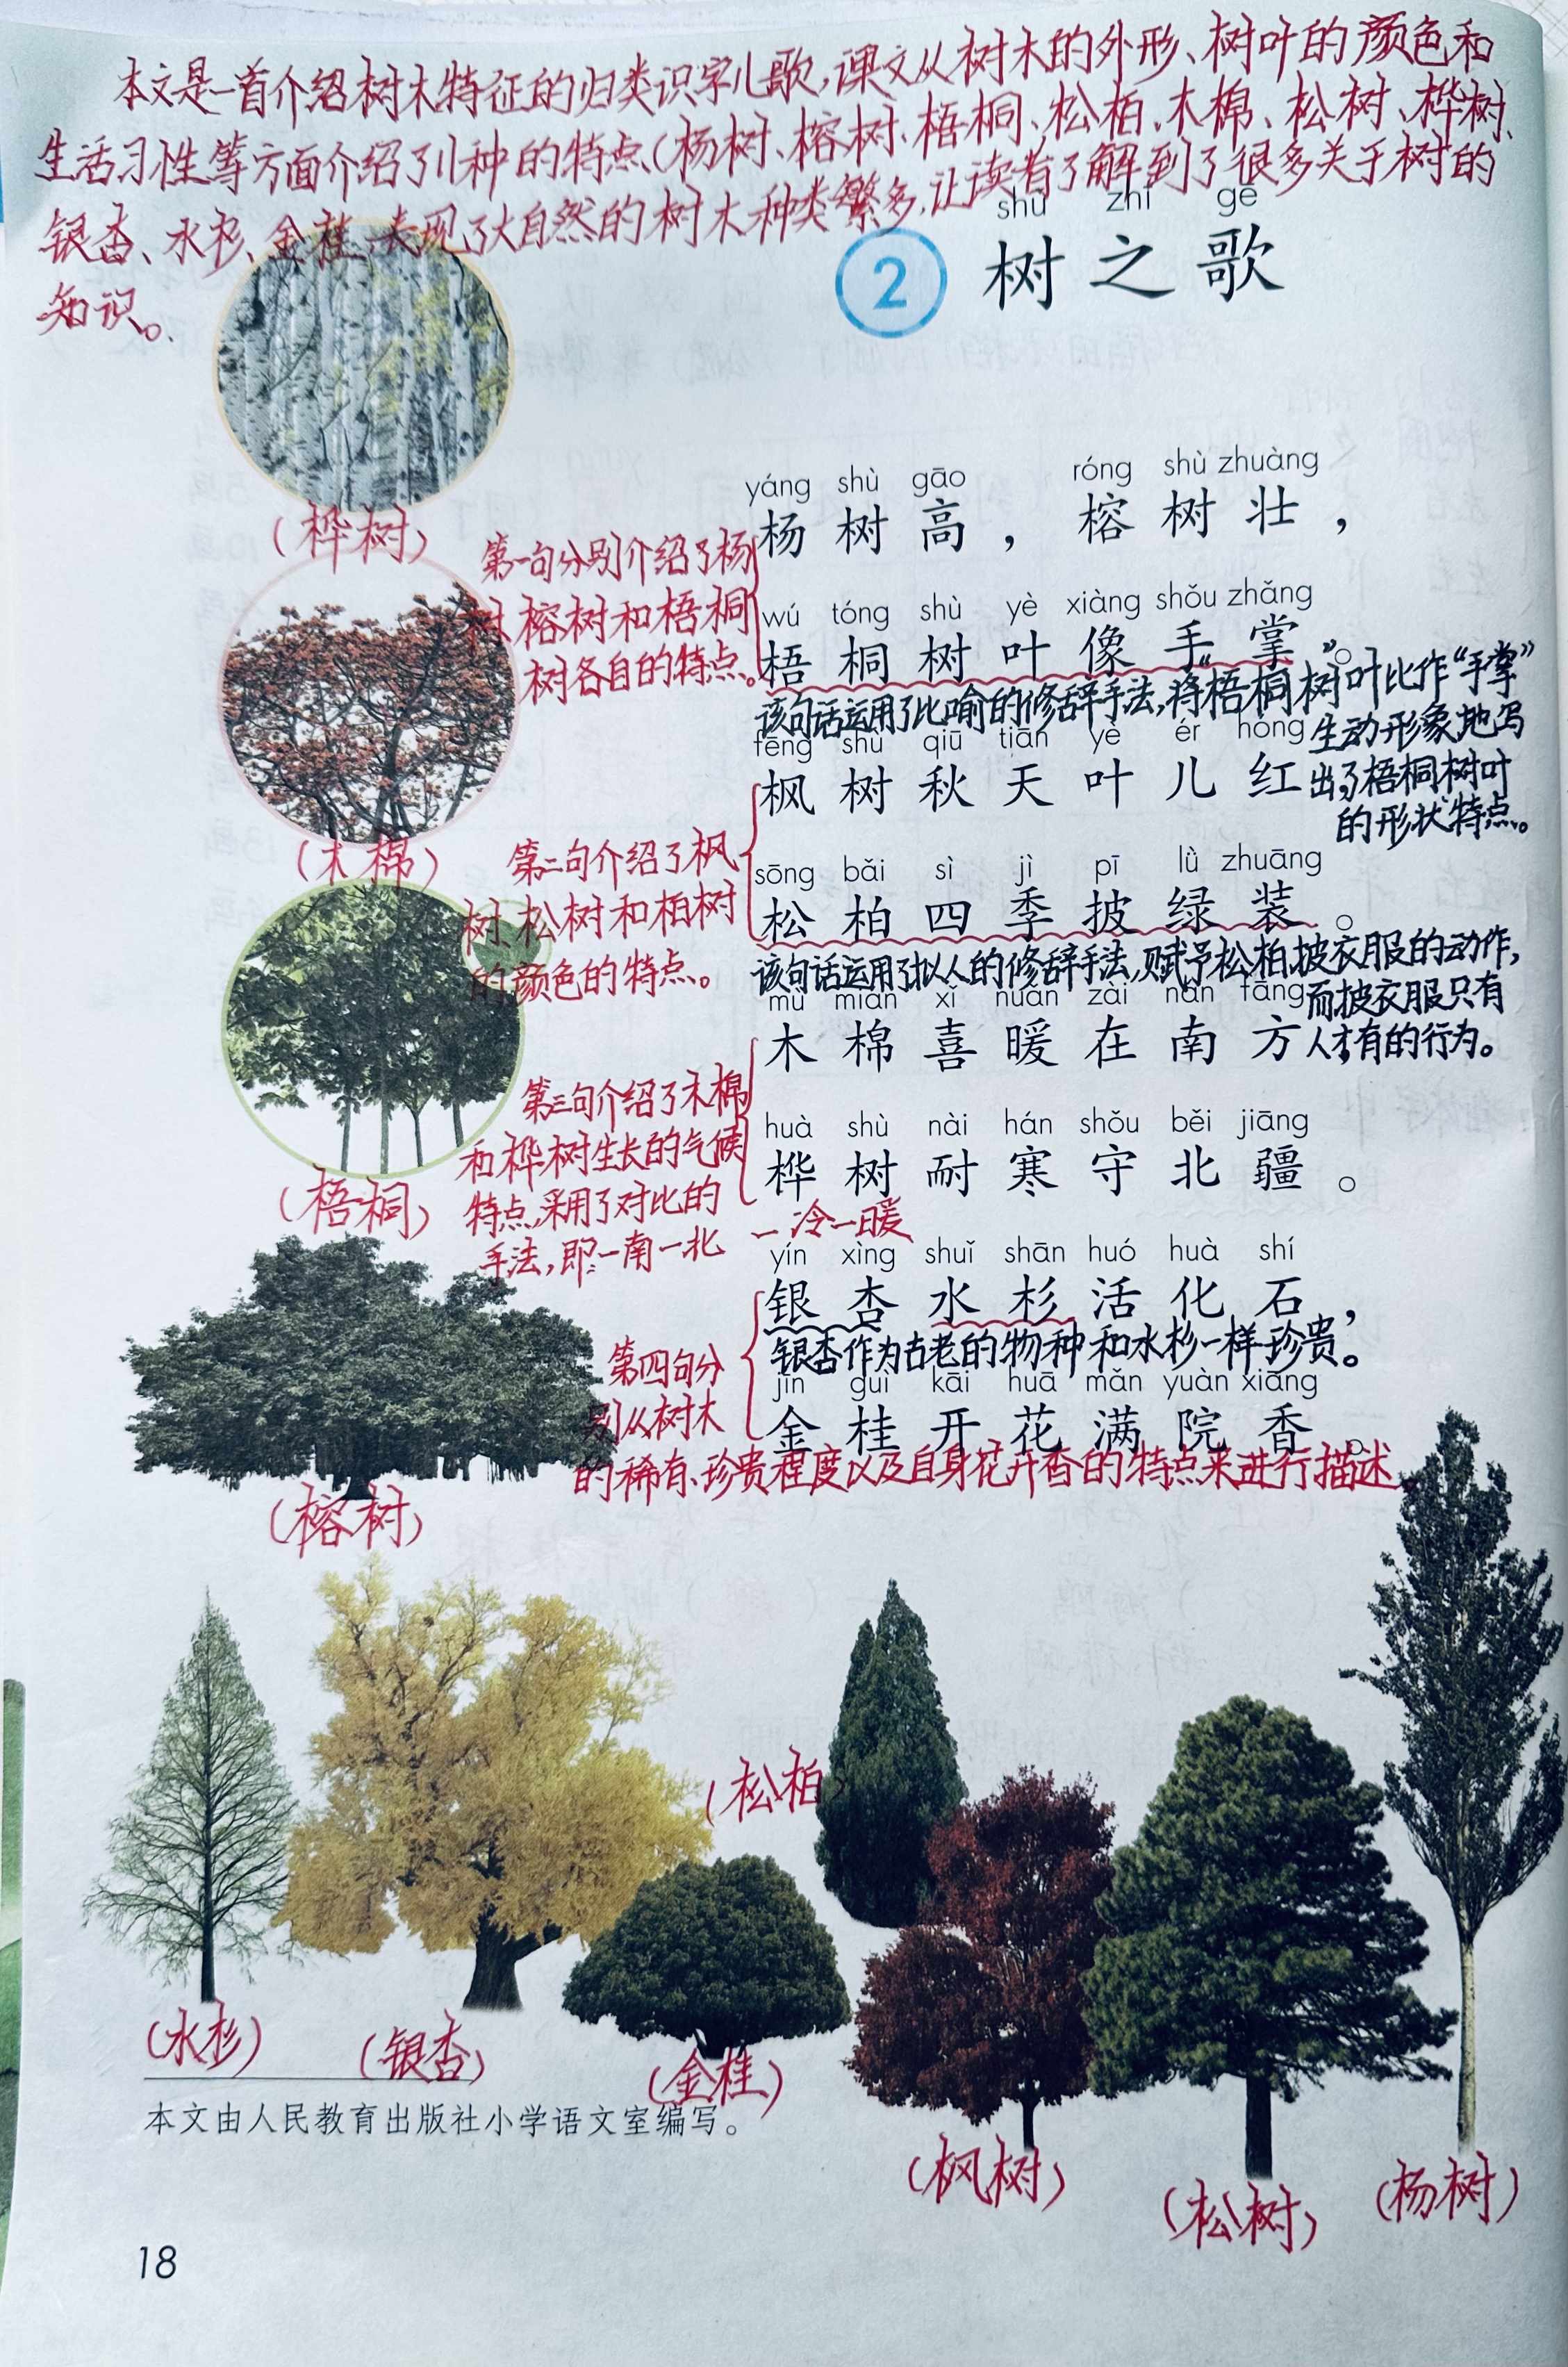 本文是一首介绍树木特征的归类识字儿歌,课文从树木的外形、树叶的颜色和
生活习性等方面介绍了11种的特点(杨树、榕树、梧桐、松柏、木棉、松树、桦树、
银杏、水杉、金桂,表现了大自然的树木种类繁多,让读者了解到了很多关于树的
知识。
shù zhī gē
2 树之歌
(桦树)
yáng shù gāo róng shù zhuàng
杨树高,榕树壮,
第一句分别介绍了杨
树、榕树和梧桐
树各自的特点。
wú tóng shù yè xiàng shǒu zhǎng
梧桐树叶像手掌。
该句话运用了比喻的修辞手法,将“梧桐树叶”比作“手掌”
生动形象地写
出了梧桐树叶
的形状特点。
fēng shù qiū tiān yè ér hóng
枫树秋天叶儿红
(木棉)
第二句介绍了枫
树、松树和柏树
的颜色的特点。
sōng bǎi sì jì pī lǜ zhuāng
松柏四季披绿装。
该句话运用了拟人的修辞手法,赋予松柏披衣服的动作,
而披衣服只有
人才有的行为。
mù mián xǐ nuǎn zài nán fāng
木棉喜暖在南方
第三句介绍了木棉
和桦树生长的气候
特点,采用了对比的
手法,即:一南一北
一冷一暖
huà shù nài hán shǒu běi jiāng
桦树耐寒守北疆。
(梧桐)
yín xìng shuǐ shān huó huà shí
银杏水杉活化石,
银杏作为古老的物种和水杉一样珍贵。
jīn guì kāi huā mǎn yuàn xiāng
金桂开花满院香。
第四句分
别从树木
的稀有、珍贵程度以及自身花开香的特点来进行描述。
(榕树)
(松柏)
(水杉)
(银杏)
(金桂)
(枫树)
(松树)
(杨树)
本文由人民教育出版社小学语文室编写。
18